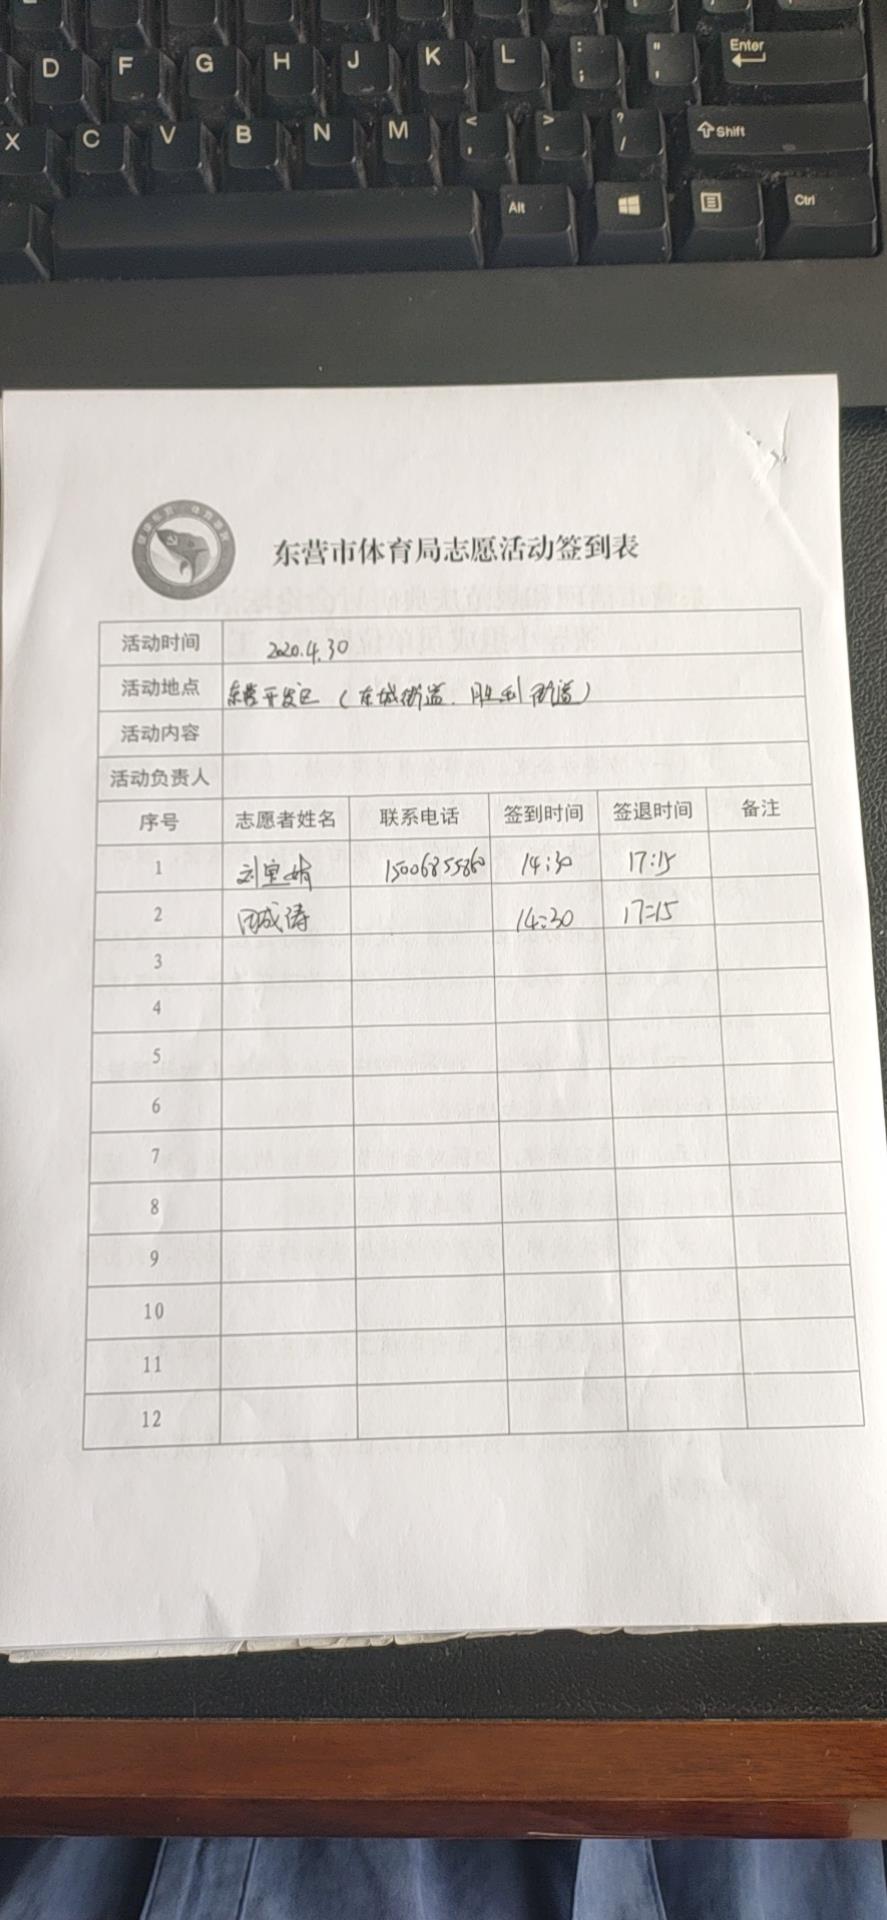 D F G H J K L : ; " ' Enter
X C V B N M < , > . ? / Shift
Alt Ctrl
东营市体育局志愿活动签到表
活动时间 2020.4.30
活动地点 东营开发区（东城街道、胜利街道）
活动内容
活动负责人
序号 志愿者姓名 联系电话 签到时间 签退时间 备注
1 刘宝娟 15006855860 14:30 17:15
2 田成涛 14:30 17:15
3
4
5
6
7
8
9
10
11
12